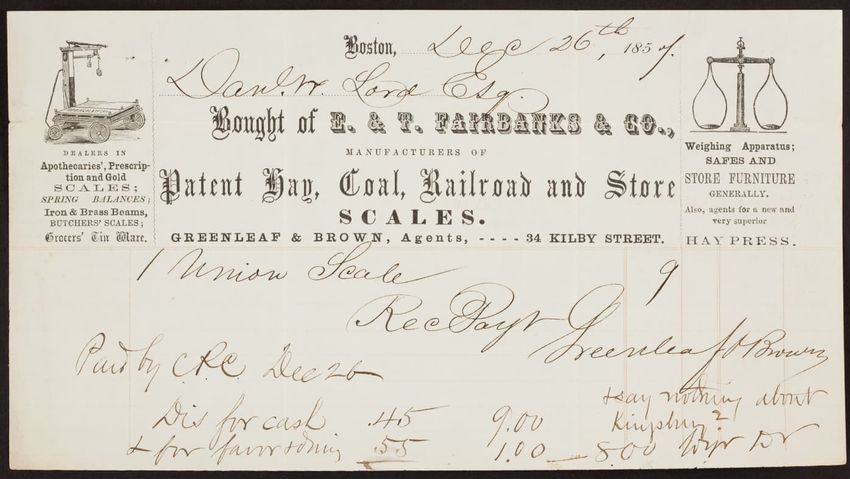 Boston, Dec 26th, 1857.
Danl. W. Lord Esq.
Bought of E. & T. FAIRBANKS & CO.,
MANUFACTURERS OF
Patent Hay, Coal, Railroad and Store
SCALES.
GREENLEAF & BROWN, Agents, ---- 34 KILBY STREET.
DEALERS IN
Apothecaries', Prescrip-
tion and Gold
SCALES;
SPRING BALANCES;
Iron & Brass Beams,
BUTCHERS' SCALES;
Grocers' Tin Ware.
Weighing Apparatus;
SAFES AND
STORE FURNITURE
GENERALLY.
Also, agents for a new and
very superior
HAY PRESS.
1 Union Scale 9
Rec Payt
Greenleaf & Brown
Paid by C.R.C. Dec 26
Dis for cash .45 9.00
& for 55 1.00 — 8.00
& say nothing about
Kingsbury?